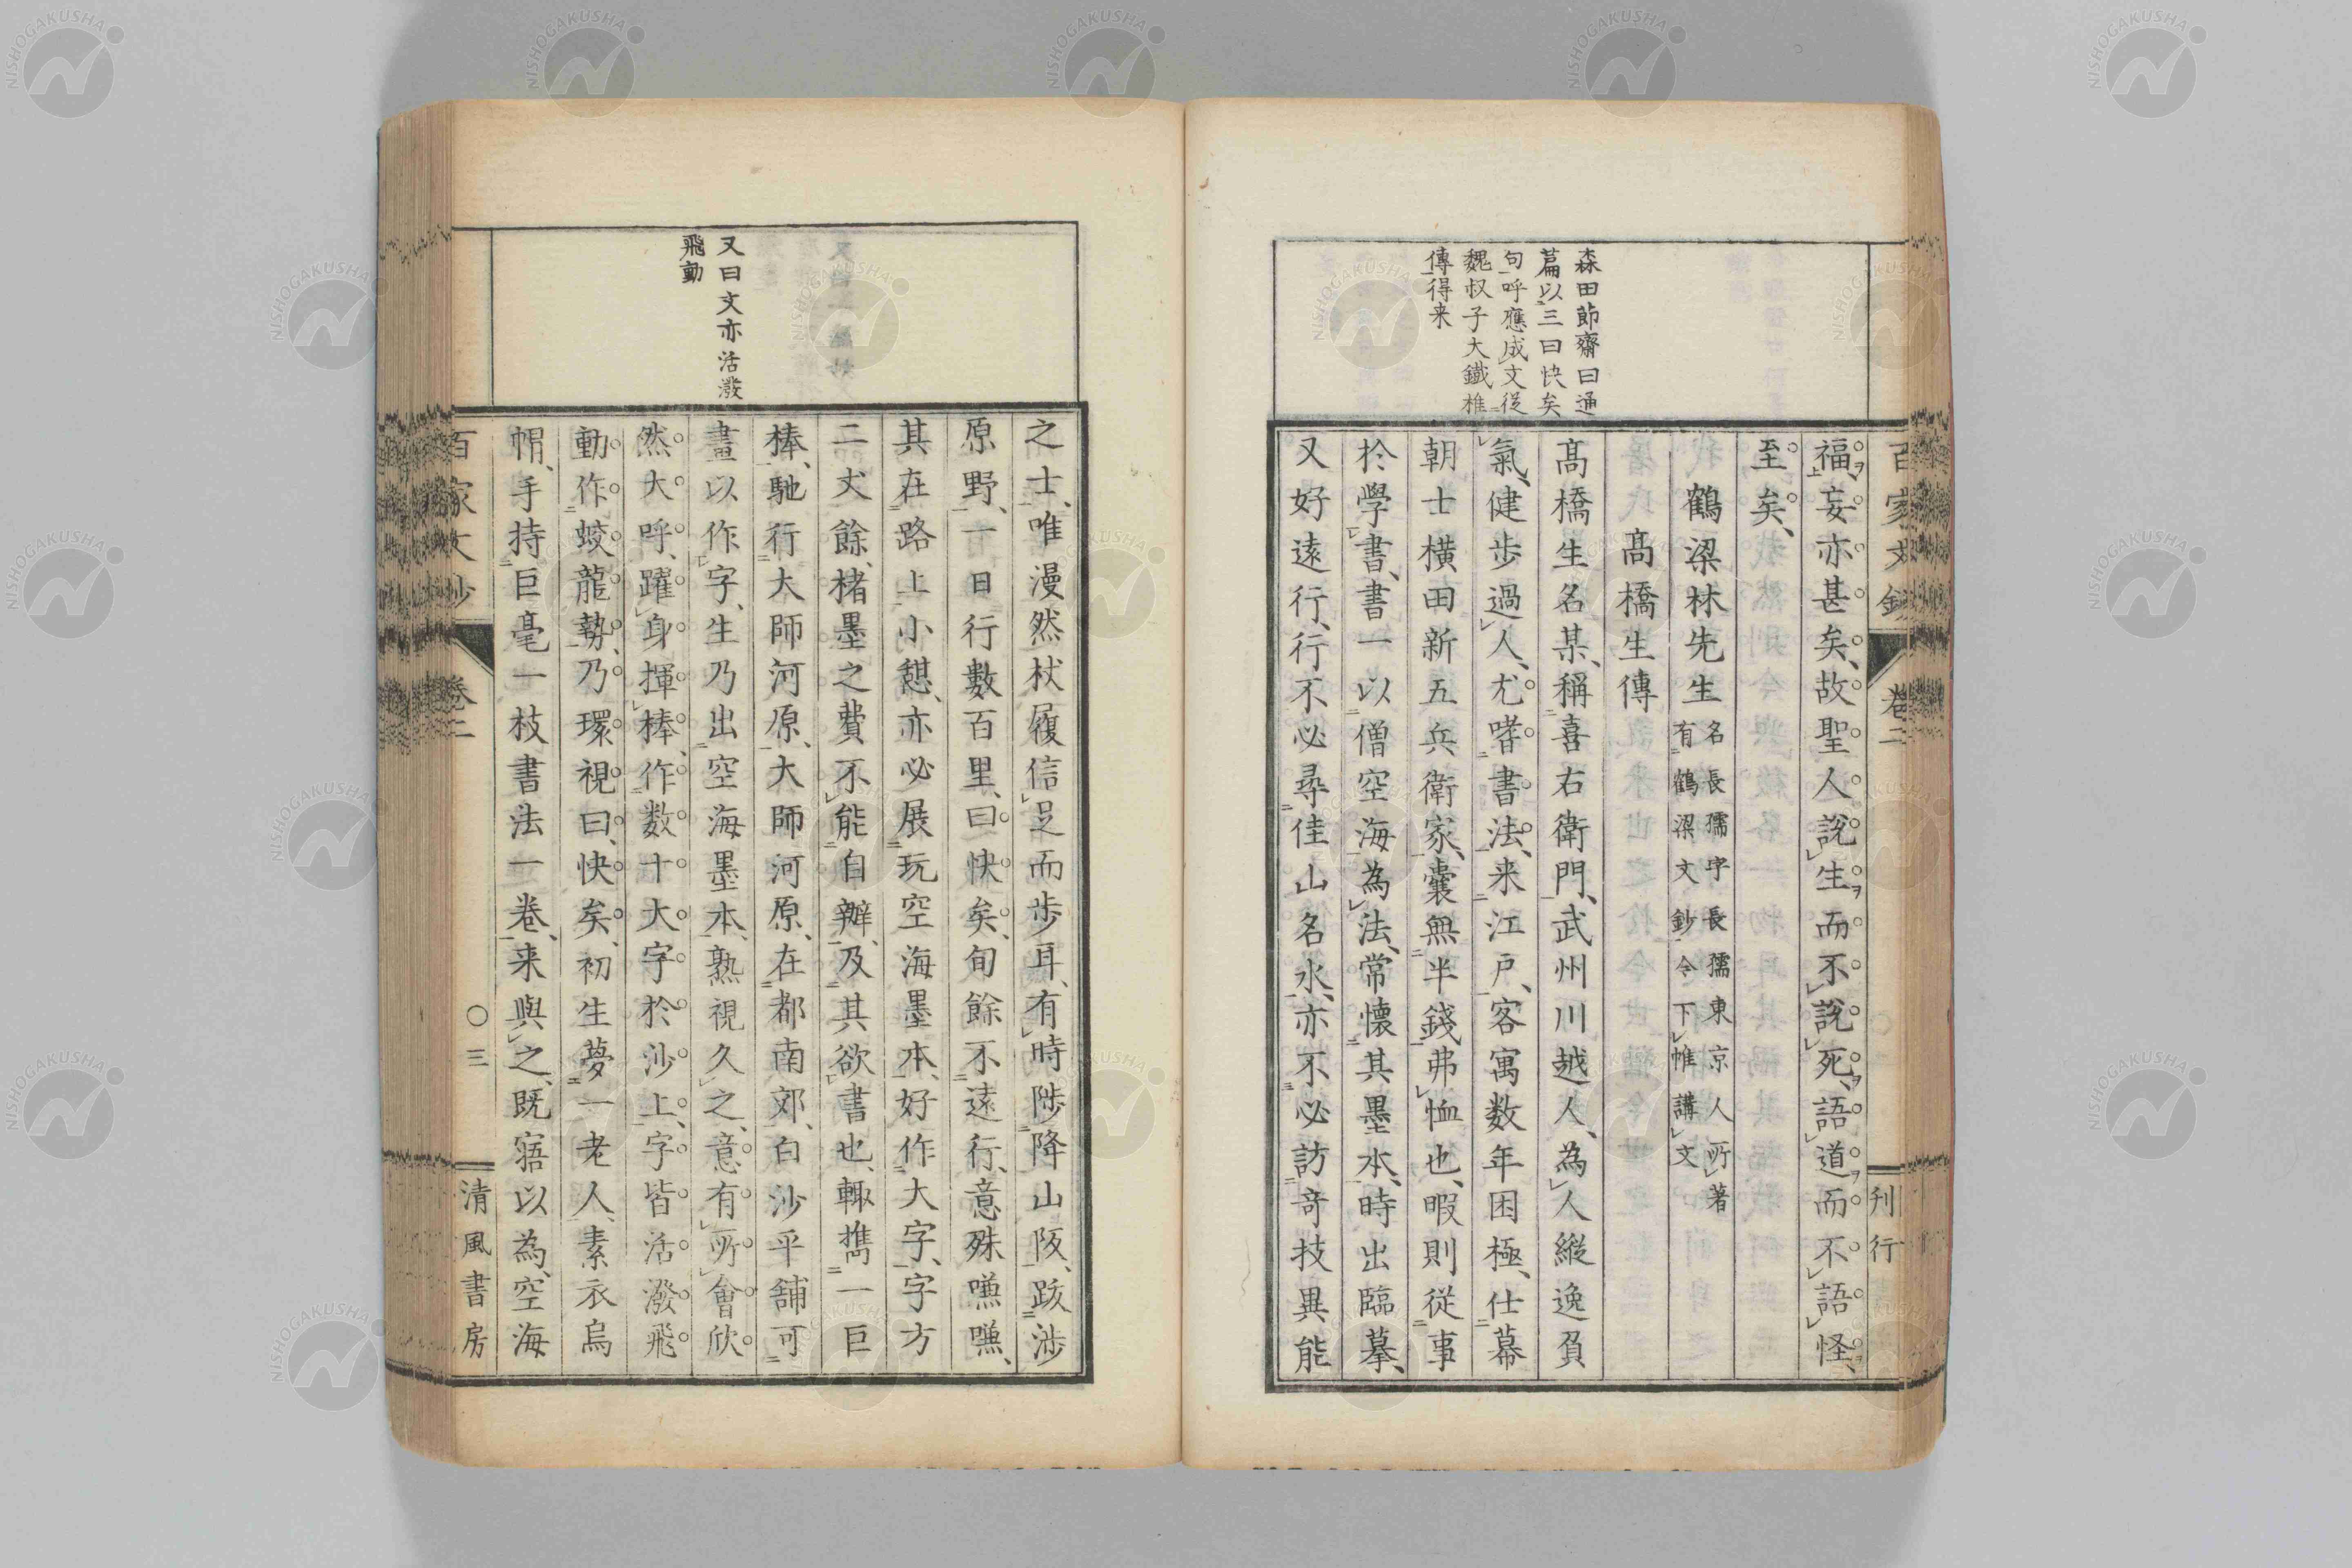 百家文鈔
卷二
刊行
森田節齋曰通
篇以三曰快矣
句呼應成文從
魏叔子大鐵椎
傳得来
福、妄亦甚矣、故聖人說生而不說死、語道而不語怪、
至矣、
鶴梁林先生名長孺字長孺東京人所著
有鶴梁文鈔今下帷講文
髙橋生傳
髙橋生名某、稱喜右衛門、武州川越人、為人縱逸負
氣、健歩過人、尤嗜書法、来江戸、客寓数年困極、仕幕
朝士横田新五兵衛家、囊無半錢弗恤也、暇則従事
於學書、書一以僧空海為法、常懷其墨本、時出臨摹、
又好遠行、行不必尋佳山名水、亦不必訪奇技異能
又曰文亦活潑
飛動
之士、唯漫然杖履信足而歩耳、有時陟降山阪、跋渉
原野、一日行數百里、曰快矣、旬餘不遠行、意殊嗛嗛、
其在路上小憩、亦必展玩空海墨本、好作大字、字方
二丈餘、楮墨之費不能自辦、及其欲書也、輙携一巨
棒、馳行大師河原、大師河原、在都南郊、白沙平舗可
畫以作字、生乃出空海墨本、熟視久之、意有所會欣
然大呼、躍身揮棒、作数十大字於沙上、字皆活潑飛
動作蛟龍勢、乃環視曰、快矣、初生夢一老人、素衣烏
帽、手持巨毫一枝書法一卷、来與之、既寤以為、空海
百家文鈔
卷二
〇三
清風書房
NISHOGAKUSHA